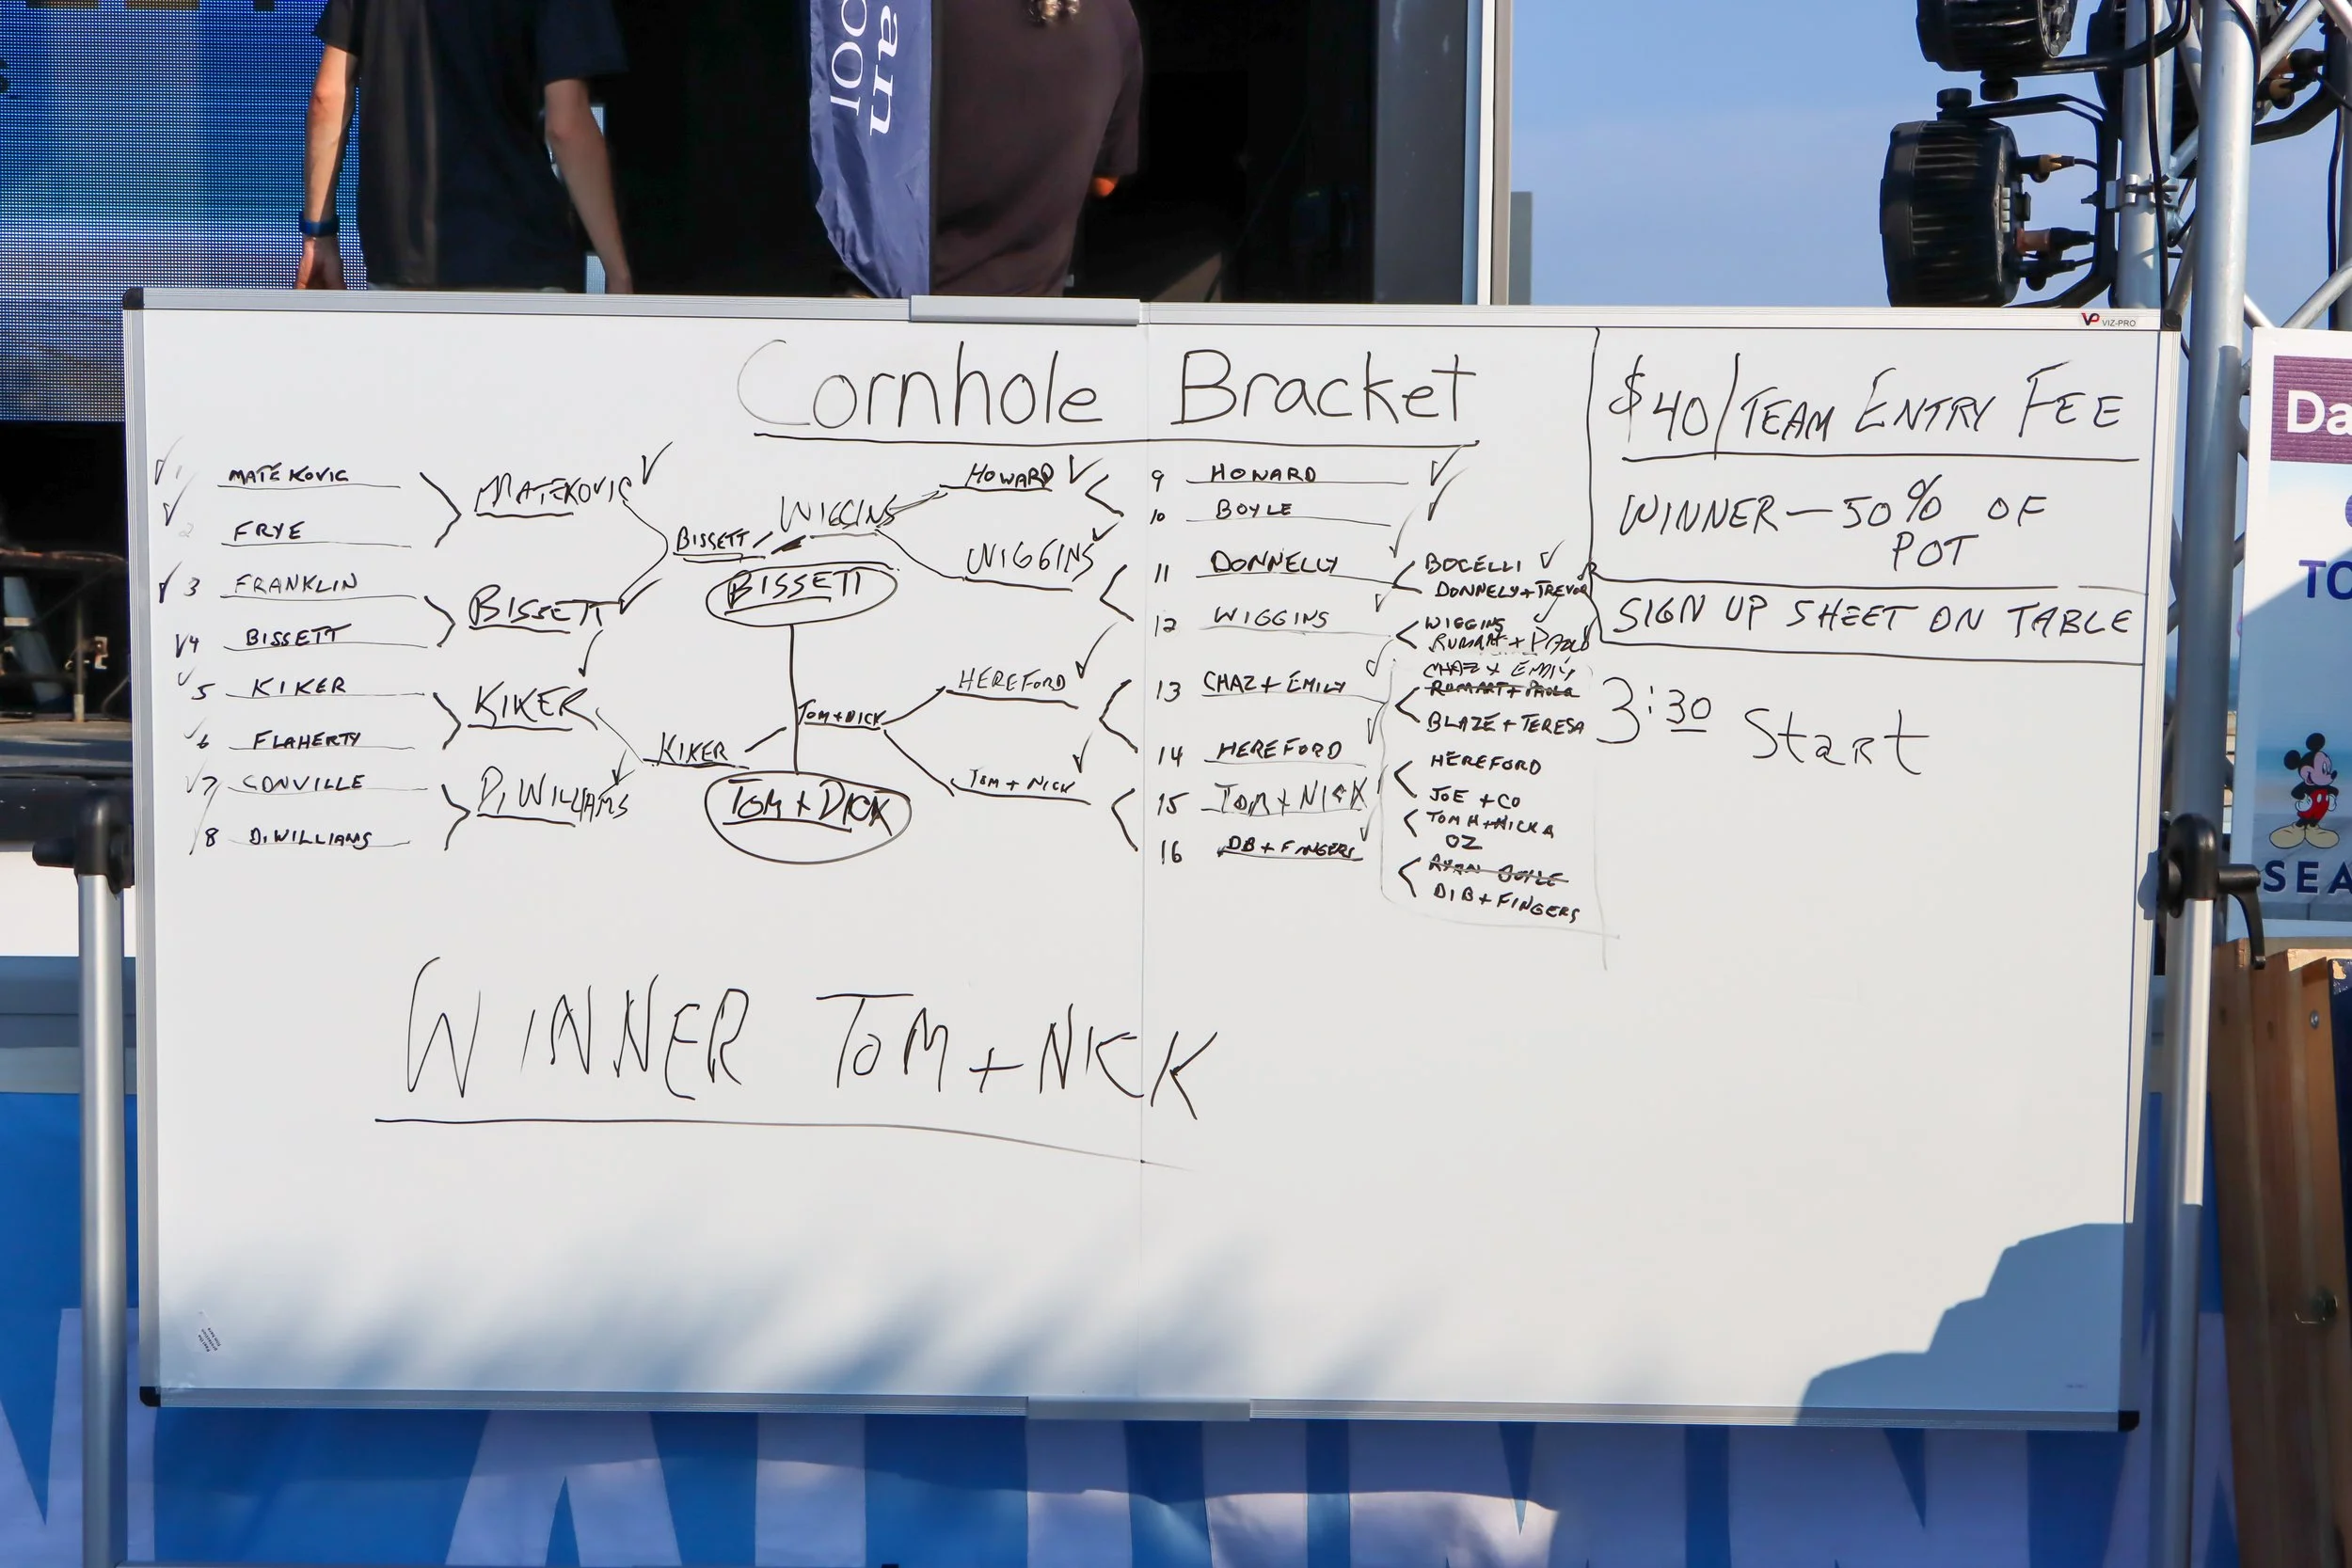 an
ool
VP VIZ-PRO
Cornhole Bracket
$40/TEAM ENTRY FEE
WINNER — 50% OF
POT
SIGN UP SHEET ON TABLE
3:30 Start
1 MATEKOVIC
2 FRYE
3 FRANKLIN
4 BISSETT
5 KIKER
6 FLAHERTY
7 CONVILLE
8 D. WILLIAMS
MATEKOVIC
BISSETT
KIKER
D. WILLIAMS
BISSETT
KIKER
BISSETT
TOM + DICK
WIGGINS
TOM + DICK
HOWARD
WIGGINS
HEREFORD
TOM + NICK
9 HOWARD
10 BOYLE
11 DONNELLY
12 WIGGINS
13 CHAZ + EMILY
14 HEREFORD
15 TOM + NICK
16 DB + FINGERS
BOCELLI
DONNELY + TREVOR
WIGGINS
CHAZ + EMILY
BLAZE + TERESA
HEREFORD
JOE + CO
TOM H + NICK A
OZ
RYAN BOYLE
DIB + FINGERS
WINNER TOM + NICK
Da
TO
SEA